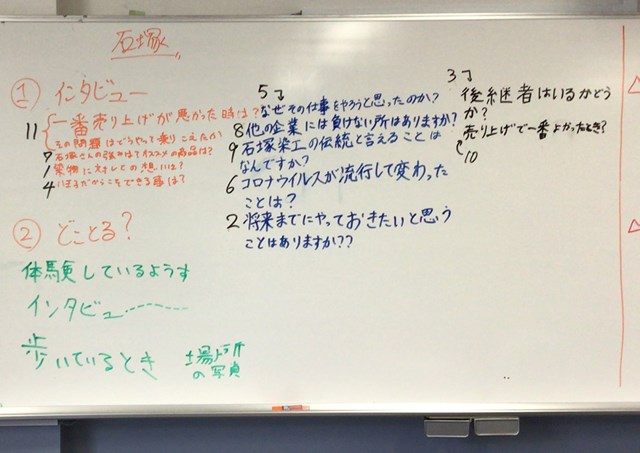 石塚
① インタビュー
11 一番売り上げが悪かった時は？
その問題はどうやって乗りこえたか
7 石塚さんの強みは？イススメの商品は？
1 染物に対しての想いは？
4 八王子だからこそできる事は？
② どことる？
体験しているようす
インタビュー
歩いているとき
場所
の写真
5
なぜその仕事をやろうと思ったのか？
8 他の企業には負けない所はありますか？
9 石塚染工の伝統と言えることは
なんですか？
6 コロナウイルスが流行して変わった
ことは？
2 将来までにやっておきたいと思う
ことはありますか??
3
後継者はいるかどう
か？
売り上げで一番よかったとき？
10